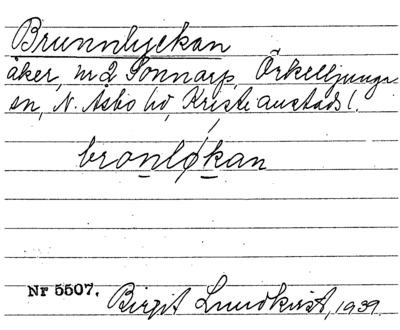 Brunnlyckan
åker, nr 2 Sonnarp, Örkelljunga
sn, N. Åsbo hd, Kristianstads l.
bronlǿkan
Nr 5507. Birgit Lundkvist, 1939.